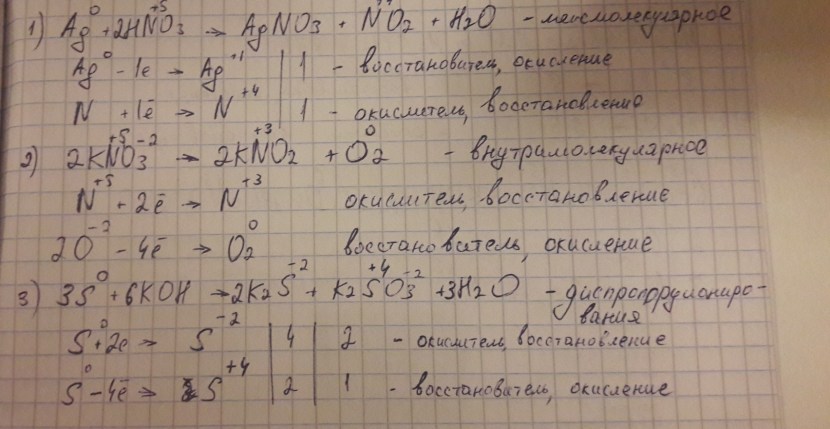 1) Ag⁰ + 2HN⁺⁵O₃ → AgNO₃ + NO₂ + H₂O - межмолекулярное
Ag⁰ - 1e → Ag⁺¹ | 1 - восстановитель, окисление
N + 1ē → N⁺⁴ | 1 - окислитель, восстановление
2) 2KN⁺⁵O₃⁻² → 2KN⁺³O₂ + O₂⁰ - внутримолекулярное
N⁺⁵ + 2ē → N⁺³ окислитель, восстановление
2O⁻² - 4ē → O₂⁰ восстановитель, окисление
3) 3S⁰ + 6KOH → 2K₂S⁻² + K₂S⁺⁴O₃⁻² + 3H₂O - диспропорциониро-
вания
S⁰ + 2e → S⁻² | 4 | 2 - окислитель, восстановление
S⁰ - 4ē → S⁺⁴ | 2 | 1 - восстановитель, окисление